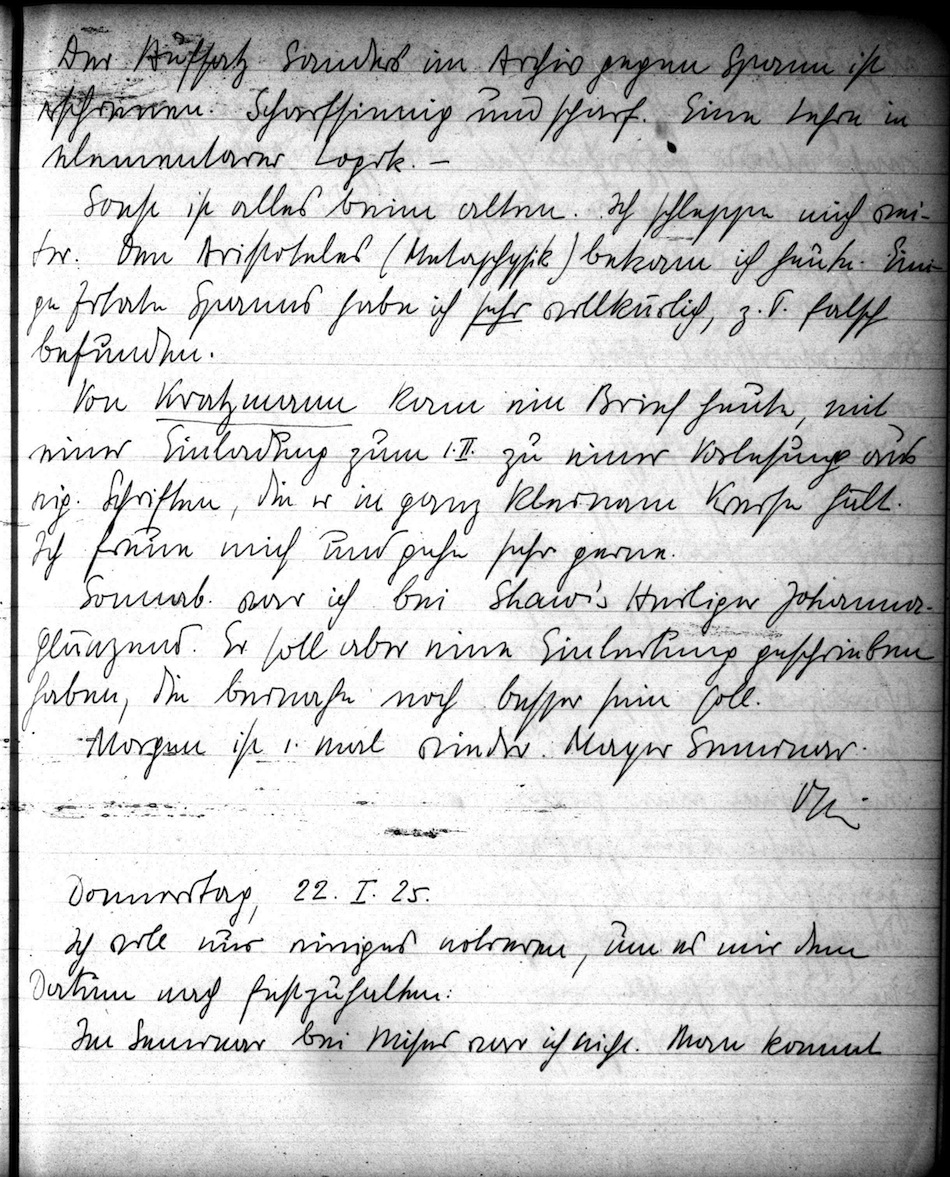 Der Aufsatz Sanders im Archiv gegen Spann ist
erschienen. Scharfsinnig und scharf. Eine Lehre in
elementarer Logik. –
Sonst ist alles beim alten. Ich schleppe mich wei-
ter. Den Aristoteles (Metaphysik) bekam ich heute. Eini-
ge Zitate Spanns habe ich sehr willkürlich, z. T. falsch
befunden.
Von Kratzmann kam ein Brief heute, mit
einer Einladung zum 1. II. zu einer Vorlesung aus
eig. Schriften, die er in ganz kleinem Kreise hält.
Ich freue mich und gehe sehr gerne.
Sonnab. war ich bei Shaw's Heiliger Johanna.
Glänzend. Er soll aber eine Einleitung geschrieben
haben, die beinahe noch besser sein soll.
Morgen ist 1. mal wieder. Mayer Seminar.
Donnerstag, 22. I. 25.
Ich will nur einiges notieren, um es mir dem
Datum nach festzuhalten:
Im Seminar bei Mises war ich nicht. Man kommt